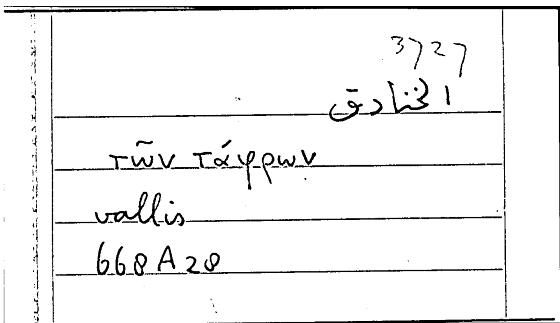 3727
الخنادق
τῶν τάφρων
vallis
668A28